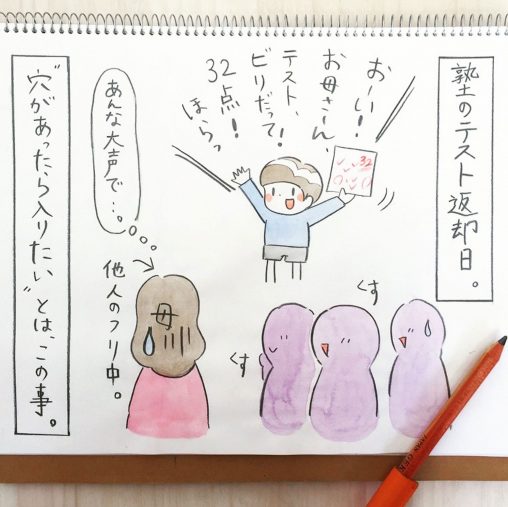 塾のテスト返却日。
おーい!
お母さーん、
テスト、
ビリだって!
32点!
ほらっ
32
あんな大声で…。
他人のフリ中。
母
くす
くす
"穴があったら入りたい"とは、この事。